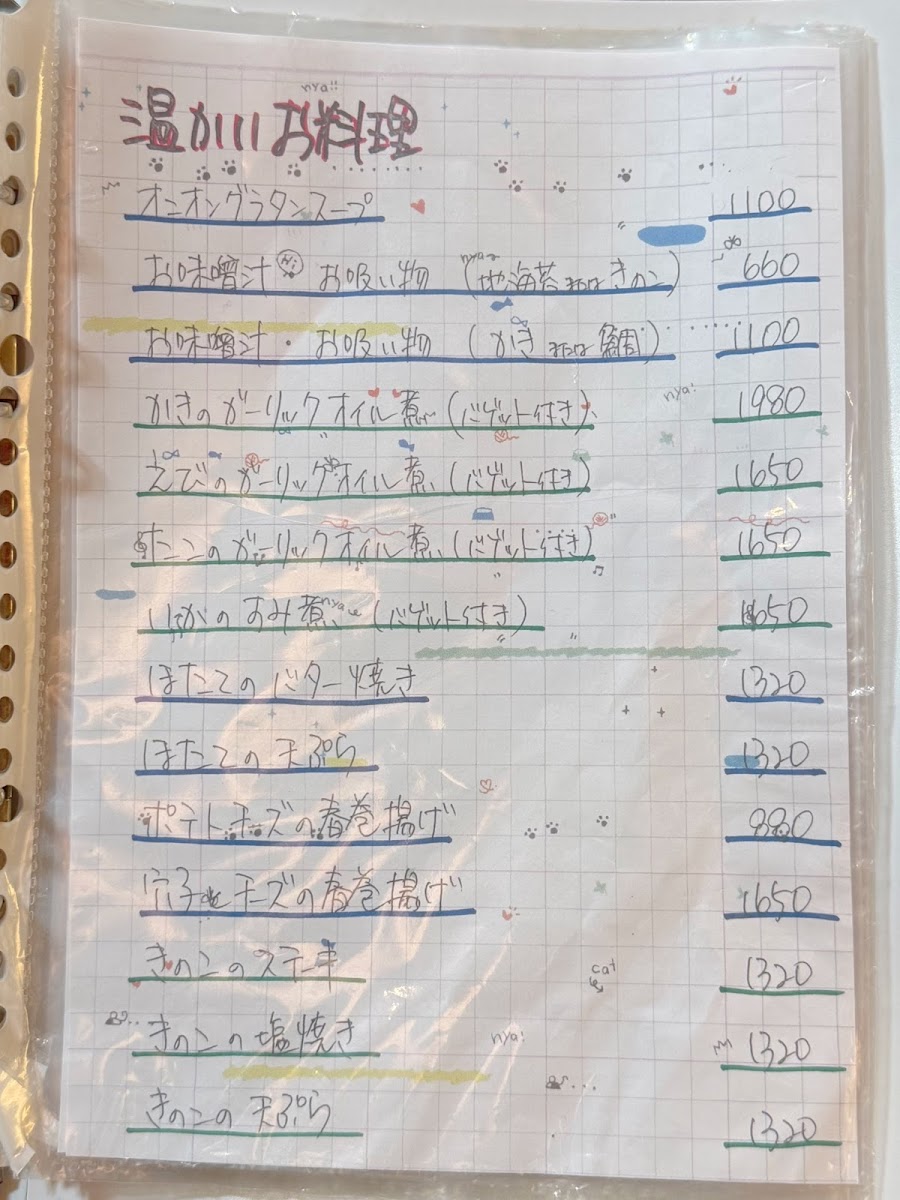 nya!!
温かいお料理
オニオングラタンスープ 1100
お味噌汁・お吸い物 (地海苔またはきのこ) 660
お味噌汁・お吸い物 (かきまたは鯛) 1100
かきのガーリックオイル煮 (バゲット付き) 1980
えびのガーリックオイル煮 (バゲット付き) 1650
たこのガーリックオイル煮 (バゲット付き) 1650
いかのすみ煮 (バゲット付き) 1650
ほたてのバター焼き 1320
ほたての天ぷら 1320
ポテトチーズの春巻揚げ
穴子とチーズの春巻揚げ 1650
きのこのステーキ 1320
cat
きのこの塩焼き 1320
nya!
きのこの天ぷら 1320